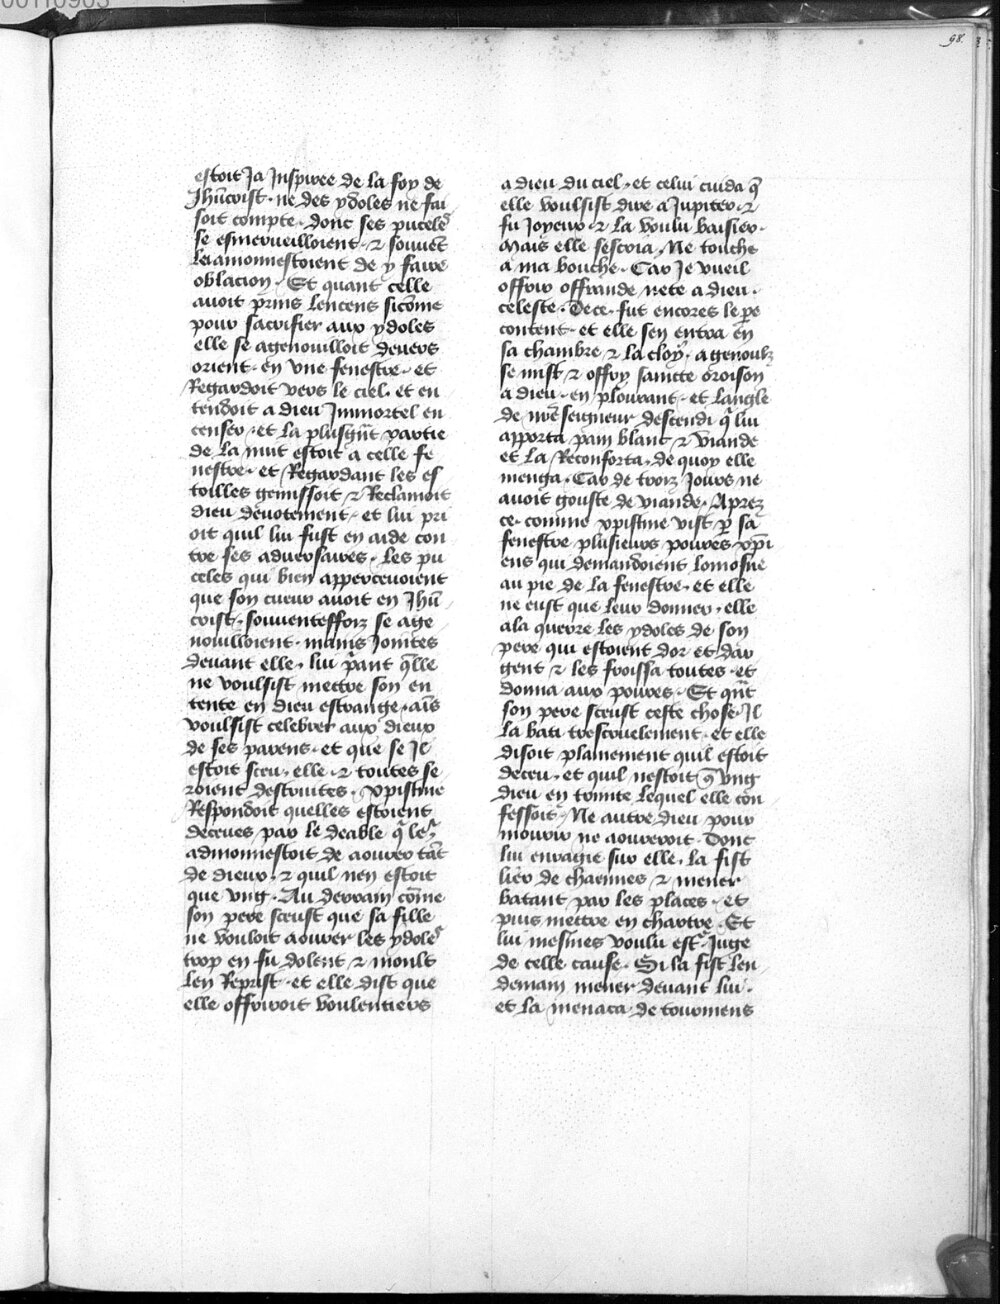 00110903
98.
estoit Ja Inspiree de la foy de
Jhucrist · ne des ydoles ne fai
soit compte · donc ses puceles
se esmerueilloient · ⁊ souuēt
lamonnestoient de y faire
oblacion · Et quant celle
auoit prins lencens sicōme
pour sacrifier aux ydoles
elle se agenouilloit deuers
orient · en vne fenestre · et
Regardoit vers le ciel · et en
tendoit a dieu Immortel en
censer · et la plusgn̄t partie
de la nuit estoit a celle fe
nestre · et Regardant les es
toilles gemissoit ⁊ Reclamoit
dieu deuotement · et lui pri
oit quil lui fust en aide con
tre ses aduersaires · Les pu
celes qui bien apperceuoient
que son cueur auoit en Jhū
crist · souuenteffoiz se age
nouilloient · mains Jointes
deuant elle · lui p̄ant q̄lle
ne voulsist mectre son en
tente en dieu estrange · ais
voulsist celebrer aux dieux
de ses parens · et que se Il
estoit sceu · elle ⁊ toutes se
roient destruites · xpistine
Respondoit quelles estoient
deceues par le deable q̄ les
admonnestoit de aourer tāt
de dieux · ⁊ quil nen estoit
que vng · Au derrain cōme
son pere sceust que sa fille
ne vouloit aourer les ydoles
trop en fu dolent ⁊ moult
len Reprist · et elle dist que
elle offriroit voulentiers
a dieu du ciel · et celui cuida q̄
elle voulsist dire a Jupiter · ⁊
fu Joyeux · ⁊ la voulu baisier ·
Mais elle sescria · Ne touche
a ma bouche · Car Je vueil
offrir offrande nete a dieu ·
celeste · De ce · fut encores le pe
content · et elle sen entra en
sa chambre ⁊ la cloy · a genoulz
se mist ⁊ offry saincte oroison
a dieu · en plourant · et langle
de nr̄e seigneur descendi q̄ lui
apporta pain blanc ⁊ viande
et la Reconforta · de quoy elle
menga · Car de troiz Jours ne
auoit gouste de viande · Aprez
ce · comme xpistine vist p̄ sa
fenestre plusieurs poures xp̄i
ens qui demandoient lomosne
au pie de la fenestre · et elle
ne eust que leur donner · elle
ala querre les ydoles de son
pere qui estoient dor et dar
gent ⁊ les froissa toutes · et
donna aux poures · Et qn̄t
son pere sceust ceste chose · Il
la bati trescruelement · et elle
disoit plainement quil estoit
deceu · et quil nestoit q̄ vng
dieu en trinite lequel elle con
fessoit · Ne autre dieu pour
mourir ne aoureroit · Donc
lui enragie sur elle · la fist
lier de chaennes ⁊ mener
batant par les places · et
puis mettre en chartre · Et
lui mesmes voulu estr̄ Juge
de celle cause · Si la fist len
demain mener deuant lui ·
et la menaca de tourmens